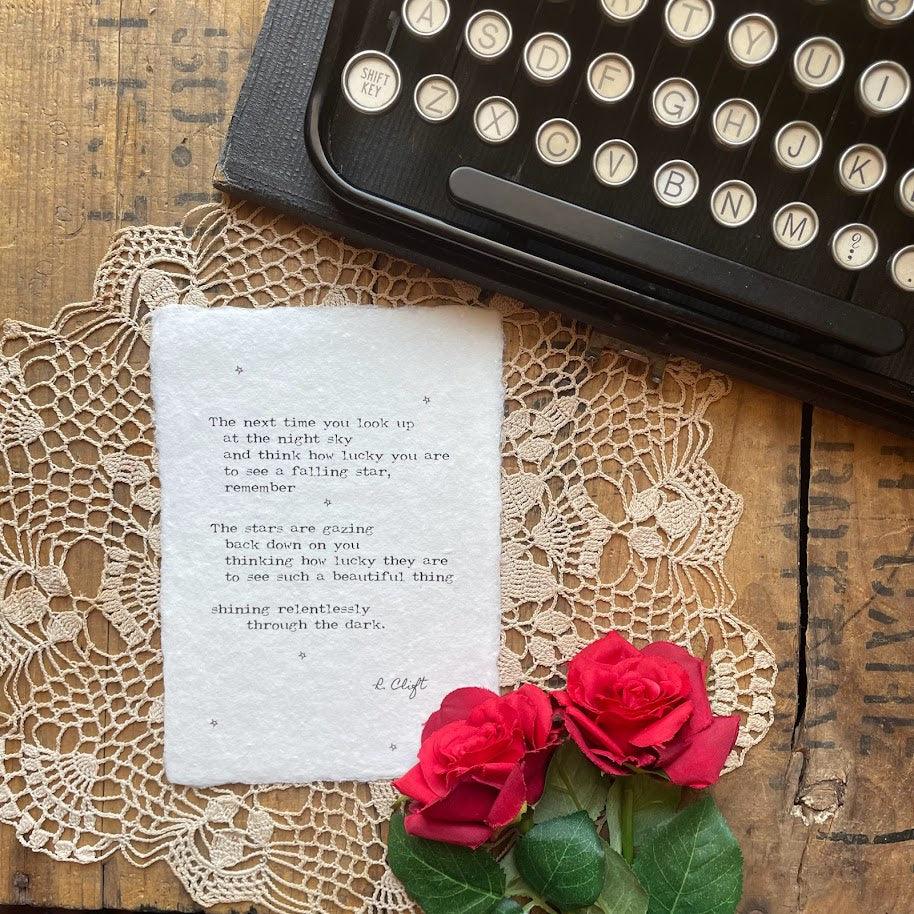 A S D F T Y U I
SHIFT
KEY
Z X C V G H J K
B N M ?
The next time you look up
at the night sky
and think how lucky you are
to see a falling star,
remember
The stars are gazing
back down on you
thinking how lucky they are
to see such a beautiful thing
shining relentlessly
through the dark.
R. Clift